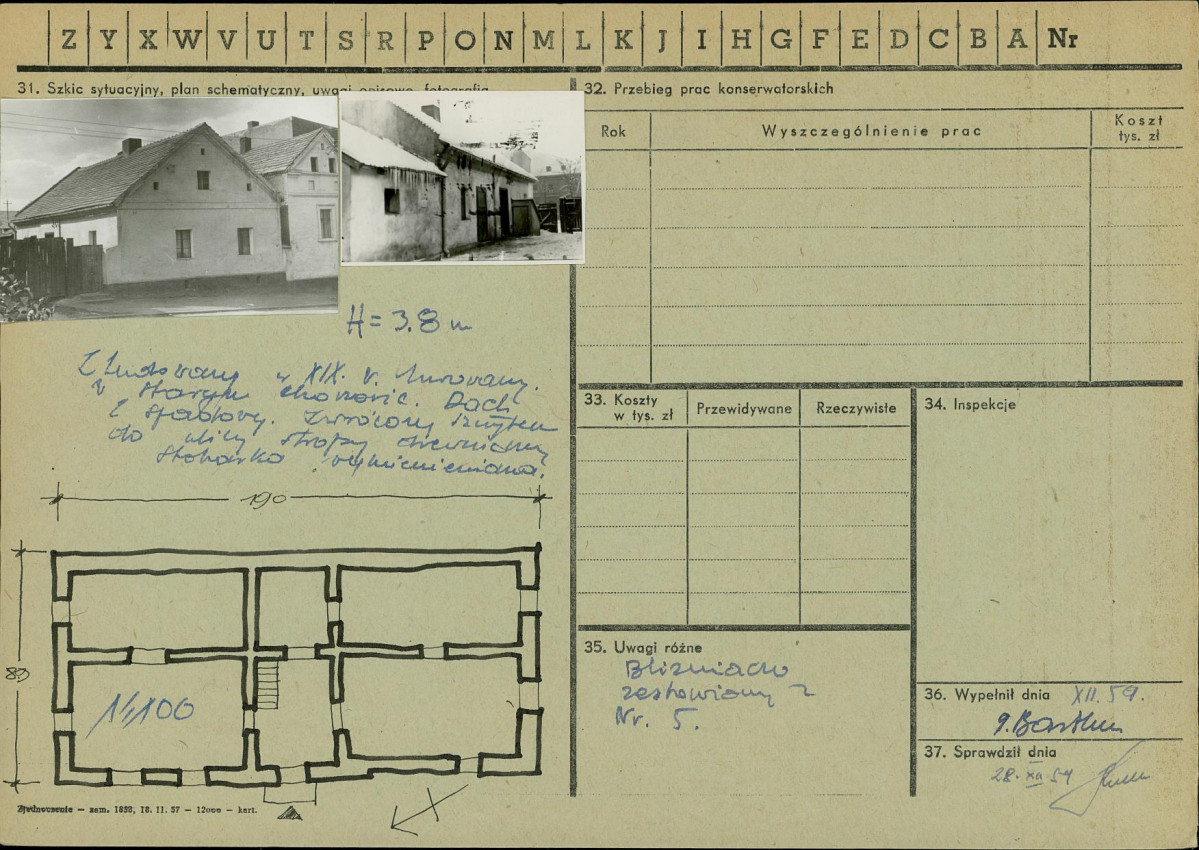 Z Y X W V U T S R P O N M L K J I H G F E D C B A Nr
31. Szkic sytuacyjny, plan schematyczny, uwagi opisowe, fotografia
H = 3.8 m
Zbudowany w XIX. w. Murowany.
Dach
Zwrócony szczytem
do ulicy stropy drewniane
stolarka wymieniona.
190
83
1/100
Zjednoczenie — zam. 1858, 18. 11. 57 — 12000 — kart.
32. Przebieg prac konserwatorskich
Rok
Wyszczególnienie prac
Koszt
tys. zł
33. Koszty
w tys. zł
Przewidywane
Rzeczywiste
34. Inspekcje
35. Uwagi różne
Bliźniaczo
zestawiony z
Nr. 5.
36. Wypełnił dnia XII. 59.
37. Sprawdził dnia
28. XII 59